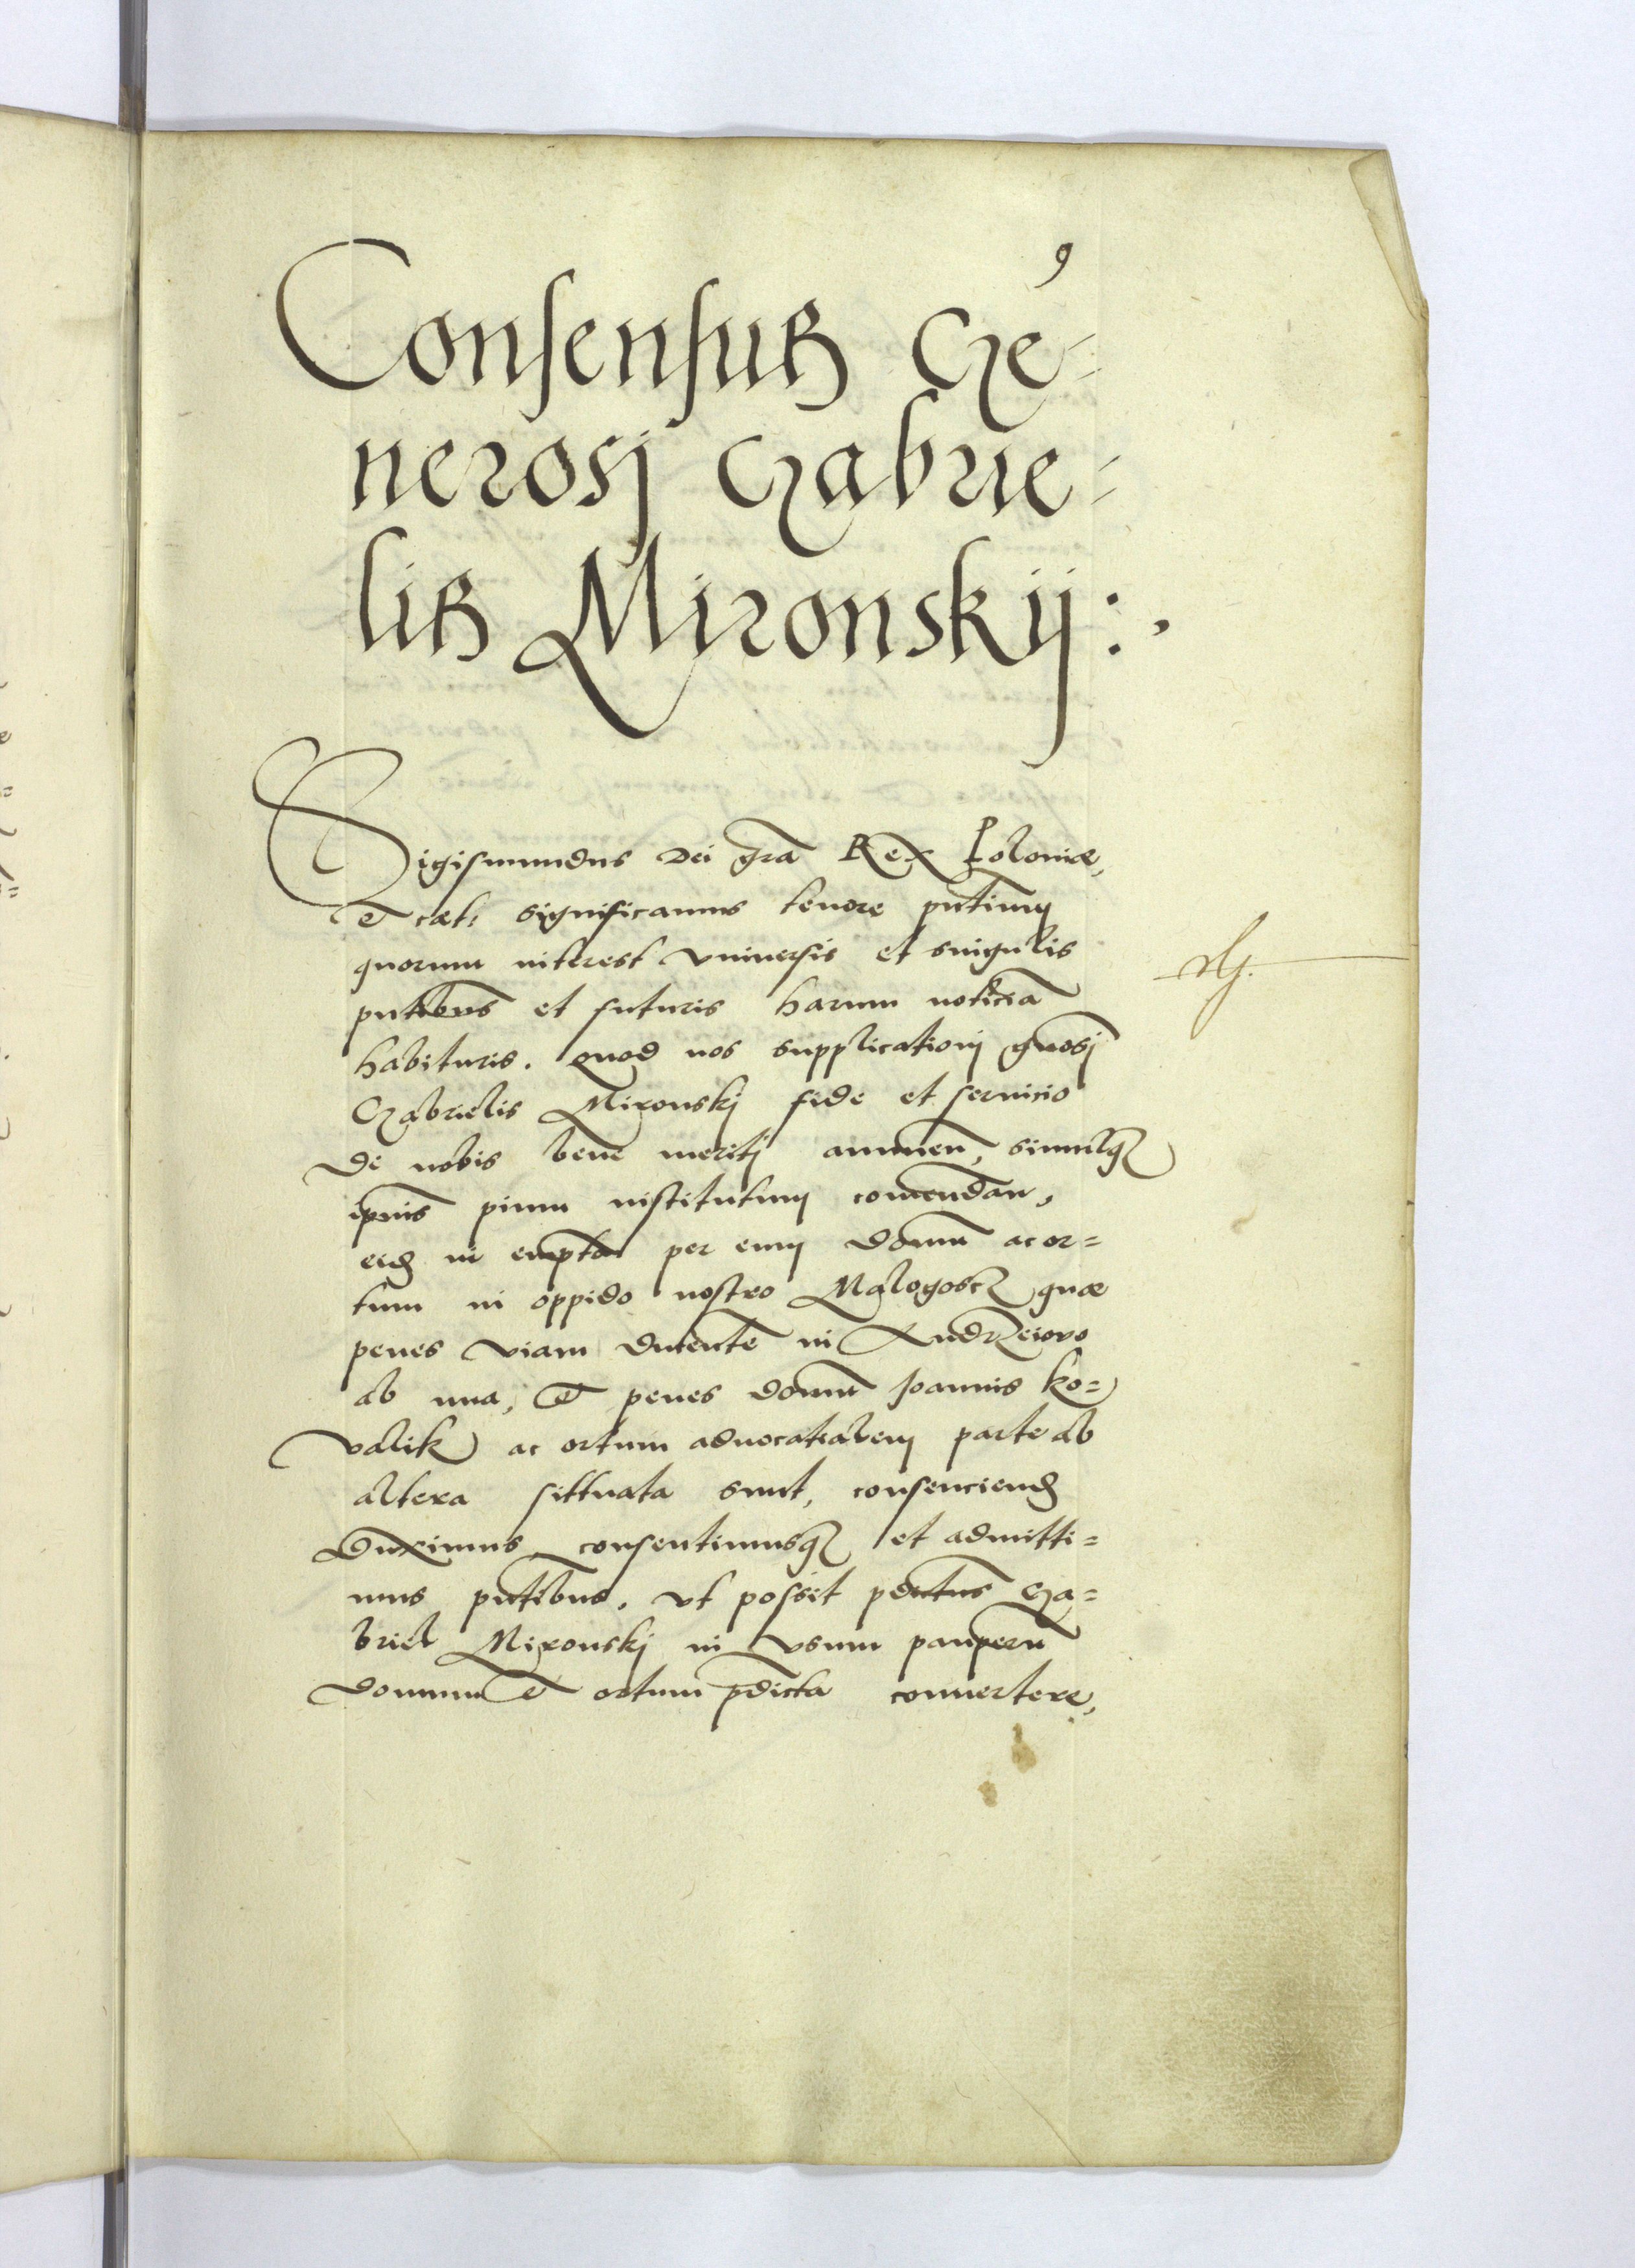 9
Consensus Ge-
nerosj Gabrie-
lis Mironskij:,
Sigismundus Dei gra Rex Poloniæ,
Et cæt: significamus tenore pntium
quorum interest vniuersis et singulis
pntibus et futuris harum noticia
habituris. Quod nos supplicationj gnosj
Gabrielis Mironskj fide et seruicio
de nobis bene meritj annuen, simulq
ipius pium institutum comendan,
eid in empta per eum domu ac or=
tum in oppido nostro Malogoscz quæ
penes viam ducente in Andrzeiovo
ab una, Et penes domu Joannis Ko=
valik ac ortum aduocatialem parte ab
altera sittuata sunt, consenciend
Duximus consentimusq et admitti=
mus pntibus. Vt possit pdictus Ga=
briel Mironskj in vsum pauperu
domum Et ortum pdicta conuertere,